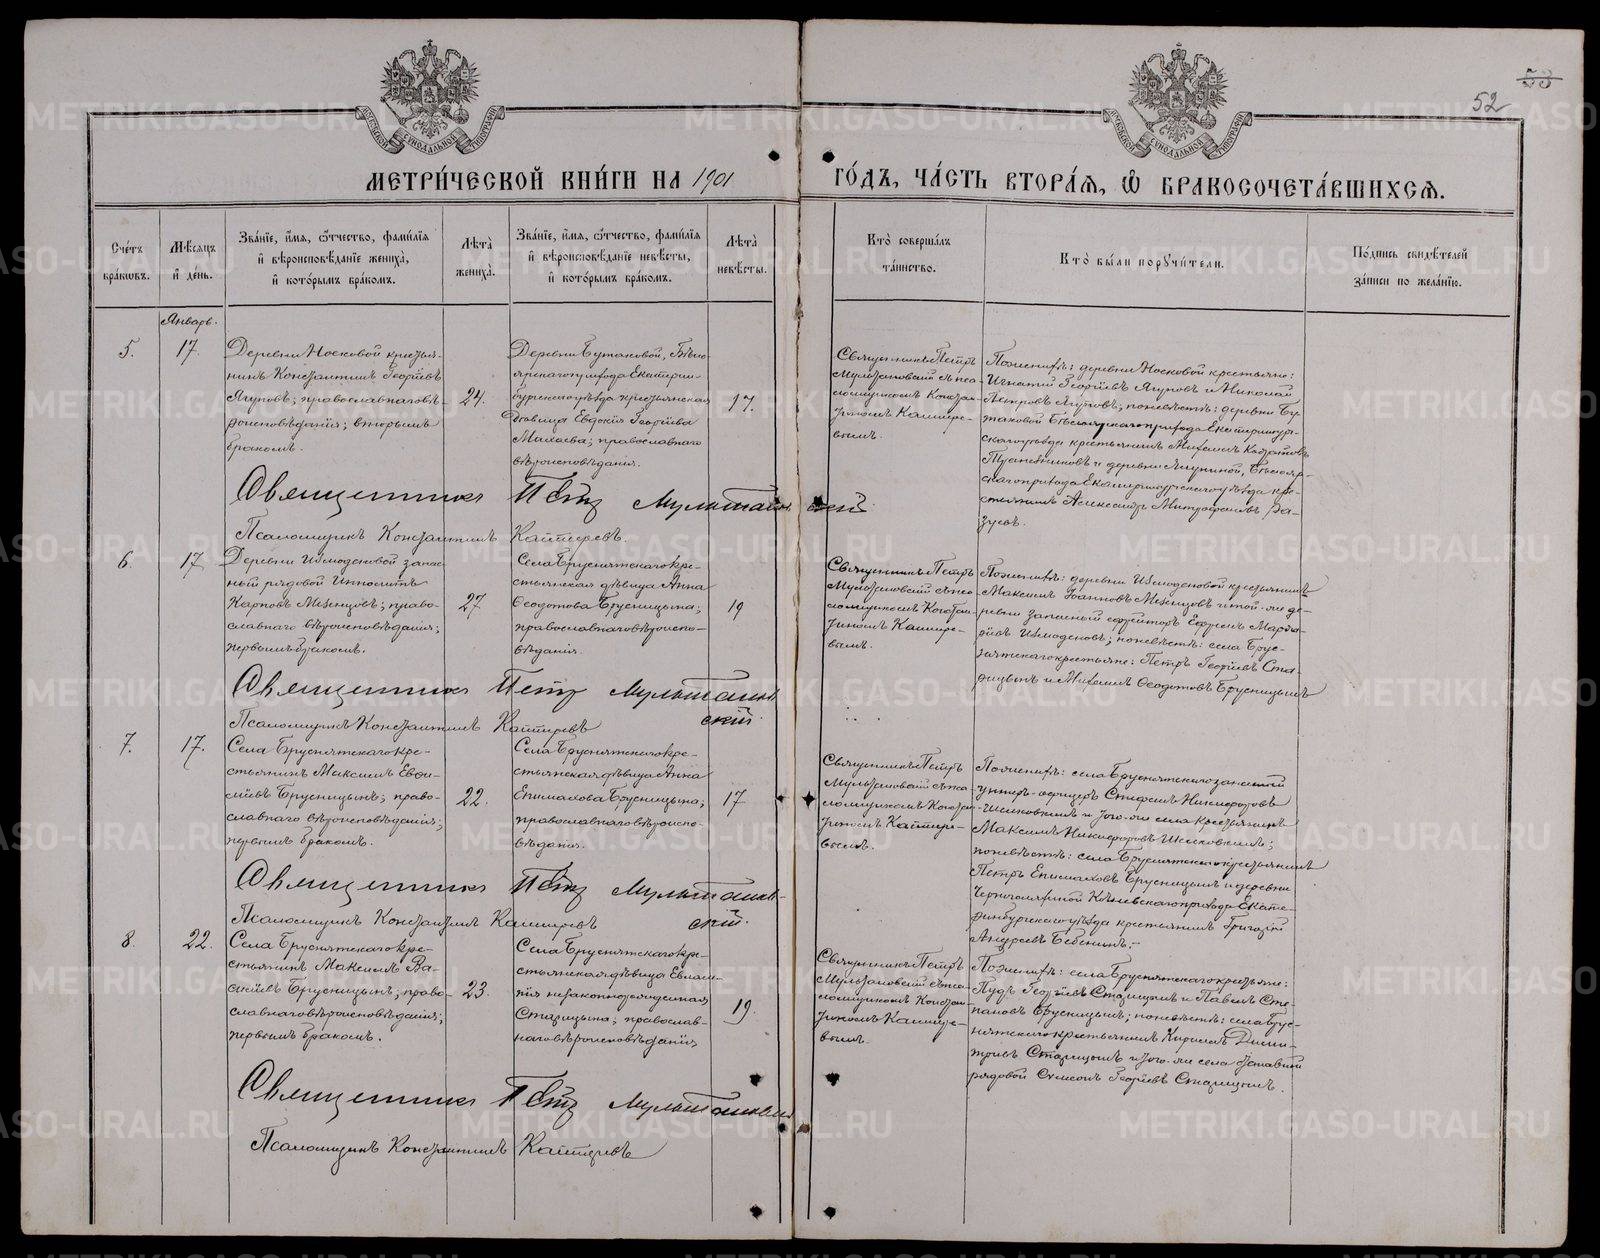 53
52
МЕТРИ́ЧЕСКОЙ КНИ́ГИ НА 1901
ГО́ДЪ, ЧА́СТЬ ВТОРА́Я, Ѽ БРАКОСОЧЕТА́ВШИХСЯ.
Сче́тъ бра́ковъ.
Мѣ́сяцъ и҆ де́нь.
Зва́нїе, и҆́мя, ѻ҆́тчество, фами́лїя
и҆ вѣроисповѣ́данїе жениха̀,
и҆ кото́рымъ бра́комъ.
Лѣ́та жениха̀.
Зва́нїе, и҆́мя, ѻ҆́тчество, фами́лїя
и҆ вѣроисповѣ́данїе невѣ́сты,
и҆ кото́рымъ бра́комъ.
Лѣ́та невѣ́сты.
Кто̀ соверша́лъ
та́инство.
Кто̀ бы́ли порꙋчи́тели.
По́дпись свидѣ́телей
за́писи по жела́нїю.
Январь.
5.
17.
Деревни Носковой крестья-
нинъ Константинъ Георгіевъ
Ягуповъ; православнаго вѣ-
роисповѣданія; вторымъ
бракомъ.
24.
Деревни Бутаковой, Бѣло-
ярскаго прихода Екатерин-
бургскаго уѣзда крестьянская
дѣвица Евдокія Георгіева
православнаго
вѣроисповѣданія.
17.
Священникъ Петръ
Мультановскій съ пса-
ломщикомъ Констан-
тиномъ Каштере-
вымъ.
По женихѣ: деревни Носковой крестьяне:
Игнатій Георгіевъ Ягуповъ и Николай
Петровъ Ягуповъ; по невѣстѣ: деревни Бу-
таковой Бѣлоярскаго прихода Екатеринбург-
скаго уѣзда крестьянинъ Михаилъ
и деревни Бѣлояр-
скаго прихода Екатеринбургскаго уѣзда кре-
стьянинъ Александръ Митрофановъ Ра-
гузовъ.
Священникъ Петръ Мультановскій
Псаломщикъ Константинъ Каштеревъ.
6.
17.
Деревни Измоденовой запас-
ный рядовой Ипполитъ
Карповъ Мезенцовъ; право-
славнаго вѣроисповѣданія;
первымъ бракомъ.
27
Села Бруснятскаго кре-
стьянская дѣвица Анна
Ѳеодотова Брусницына;
православнаго вѣроиспо-
вѣданія.
19
Священникъ Петръ
Мультановскій съ пса-
ломщикомъ Констан-
тиномъ Каштере-
вымъ.
По женихѣ: деревни Измоденовой крестьянинъ
Максимъ Іоанновъ Мезенцовъ и той-же де-
ревни запасный ефрейторъ Ефремъ
Измоденовъ; по невѣстѣ: села Брус-
нятскаго крестьяне: Петръ Георгіевъ Ста-
рицынъ и Михаилъ Ѳеодотовъ Брусницынъ
Священникъ Петръ Мультанов-
скій.
Псаломщикъ Константинъ Каштеревъ
7.
17.
Села Бруснятскаго кре-
стьянинъ Максимъ Евфи-
міевъ Брусницынъ; право-
славнаго вѣроисповѣданія;
первымъ бракомъ.
22.
Села Бруснятскаго кре-
стьянская дѣвица Анна
Епимахова Брусницына;
православнаго вѣроиспо-
вѣданія.
17
Священникъ Петръ
Мультановскій съ пса-
ломщикомъ Констан-
тиномъ Каштере-
вымъ.
По женихѣ: села Бруснятскаго запасный
унтеръ-офицеръ Стефанъ Никифоровъ
и того-же села крестьянинъ
Максимъ Никифоровъ
по невѣстѣ: села Бруснятскаго крестьянинъ
Петръ Епимаховъ Брусницынъ и деревни
прихода Екате-
ринбургскаго уѣзда крестьянинъ Григорій
Андреевъ Бебенинъ.
Священникъ Петръ Мультанов-
скій.
Псаломщикъ Константинъ Каштеревъ
8.
22.
Села Бруснятскаго кре-
стьянинъ Максимъ Ва-
силіевъ Брусницынъ; право-
славнаго вѣроисповѣданія;
первымъ бракомъ.
23.
Села Бруснятскаго кре-
стьянская дѣвица Евлам-
пія незаконнорожденная
Старицына; православ-
наго вѣроисповѣданія
19.
Священникъ Петръ
Мультановскій съ пса-
ломщикомъ Констан-
тиномъ Каштере-
вымъ.
По женихѣ: села Бруснятскаго крестьяне:
Пудъ Георгіевъ Старицынъ и Павелъ Сте-
пановъ Брусницынъ; по невѣстѣ: села Брус-
нятскаго крестьянинъ Кириллъ Дими-
тріевъ Старицынъ и того-же села отставной
рядовой Симеонъ Георгіевъ Старицынъ.
Священникъ Петръ Мультановскій
Псаломщикъ Константинъ Каштеревъ
METRIKI.GASO-URAL.RU